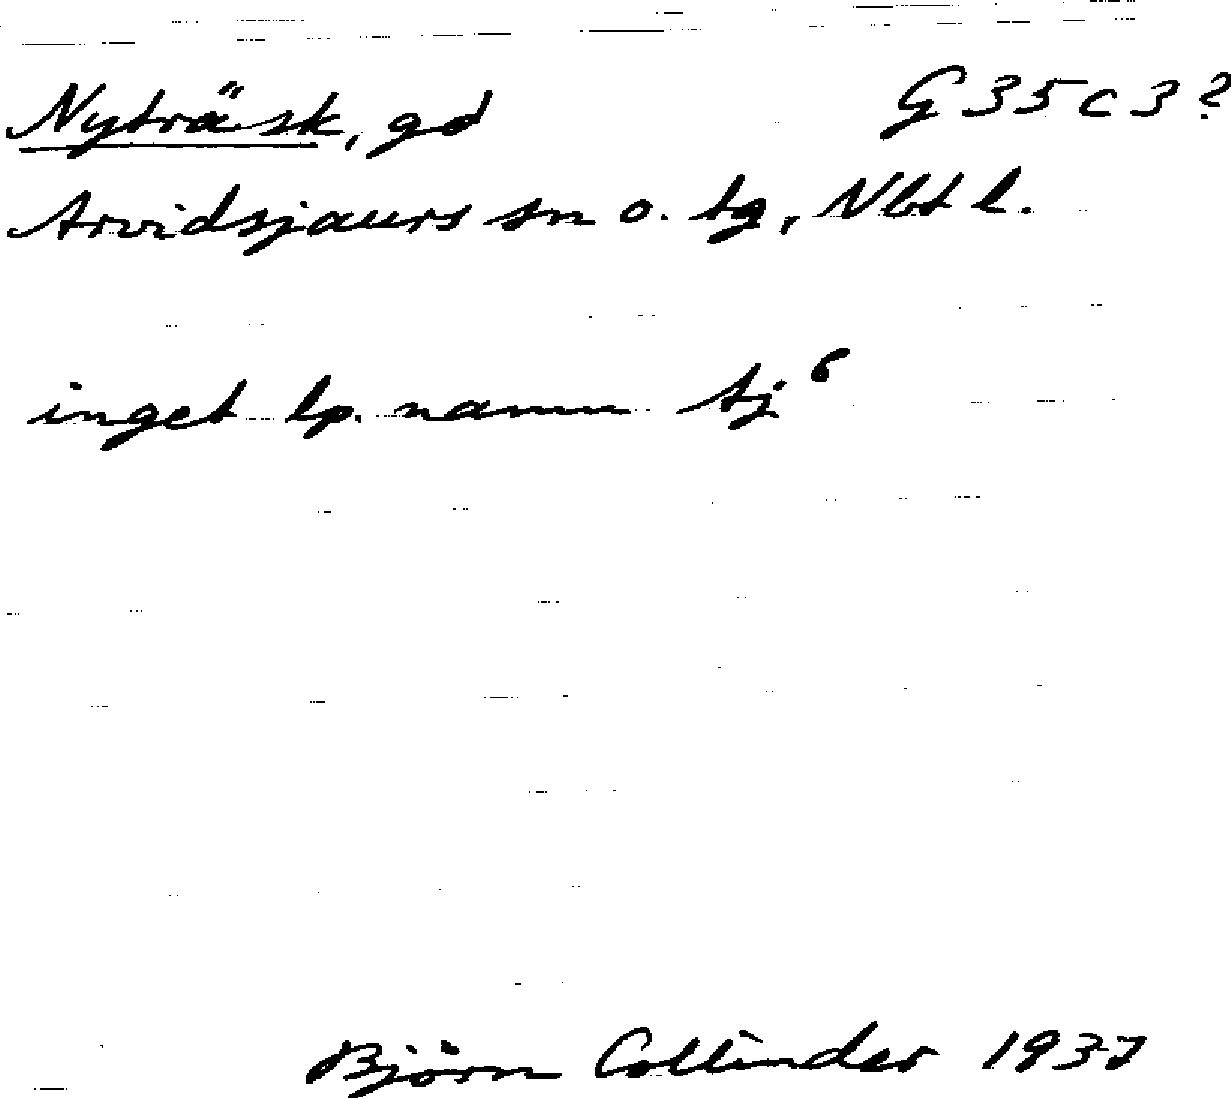 Nyträsk, gd G 35 c 3?
Arvidsjaurs sn o. tg, Nbt l.
inget lp. namn tj⁶
Björn Collinder 1937